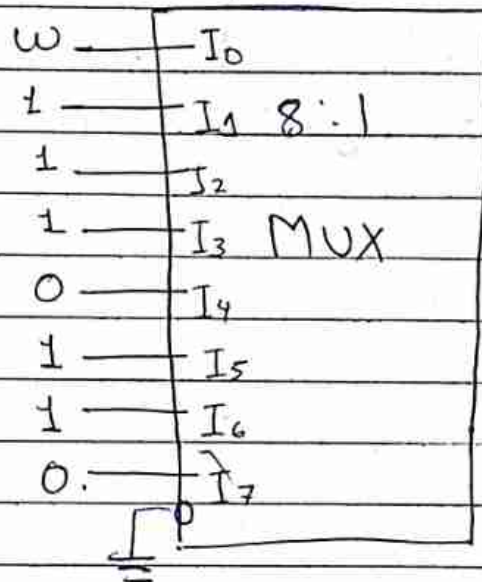 W I0
1 I1 8:1
1 I2
1 I3 MUX
0 I4
1 I5
1 I6
0. I7